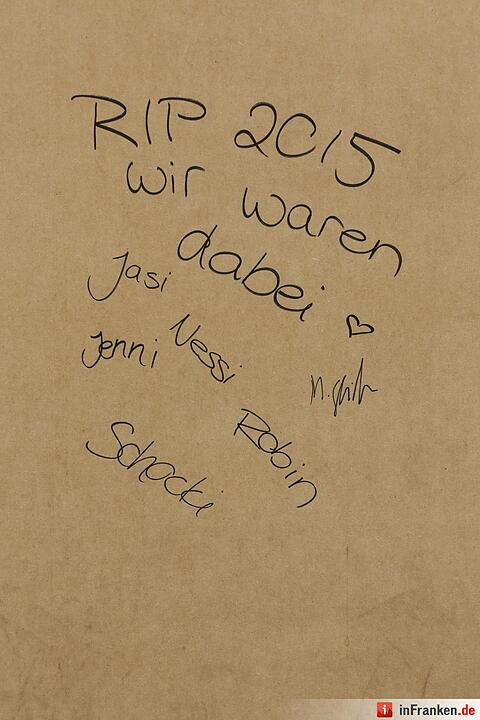 RIP 2015
wir waren
dabei ♡
Jasi
Nessi
Jenni
Robin
Schocki
inFranken.de